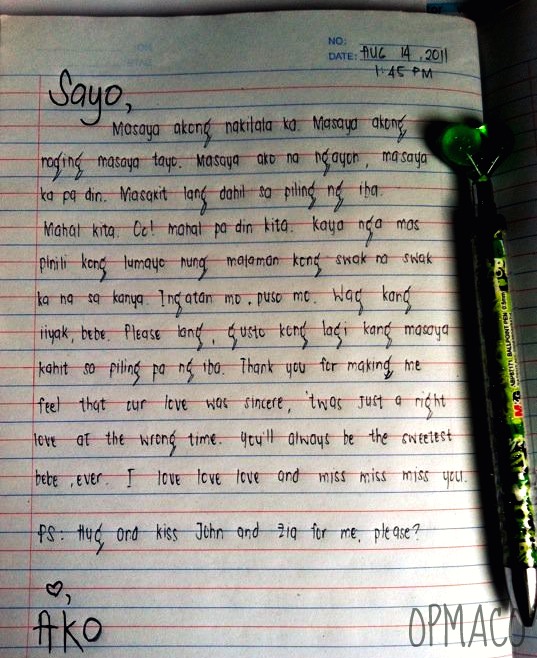 NO:
DATE: AUG 14, 2011
1:45 PM
Sayo,
Masaya akong nakilala ka. Masaya akong
naging masaya tayo. Masaya ako na ngayon, masaya
ka pa din. Masakit lang dahil sa piling ng iba.
Mahal kita. Oo! mahal pa din kita. Kaya nga mas
pinili kong lumayo nung malaman kong swak na swak
ka na sa kanya. Ingatan mo, puso mo. Wag kang
iiyak, bebe. Please lang, gusto kong lagi kang masaya
kahit sa piling pa ng iba. Thank you for making me
feel that our love was sincere, 'twas just a right
love at the wrong time. You'll always be the sweetest
bebe, ever. I love love love and miss miss miss you.
PS: Hug and kiss John and Zia for me, please?
♡,
AKO
OPMACO
BALLPOINT PEN